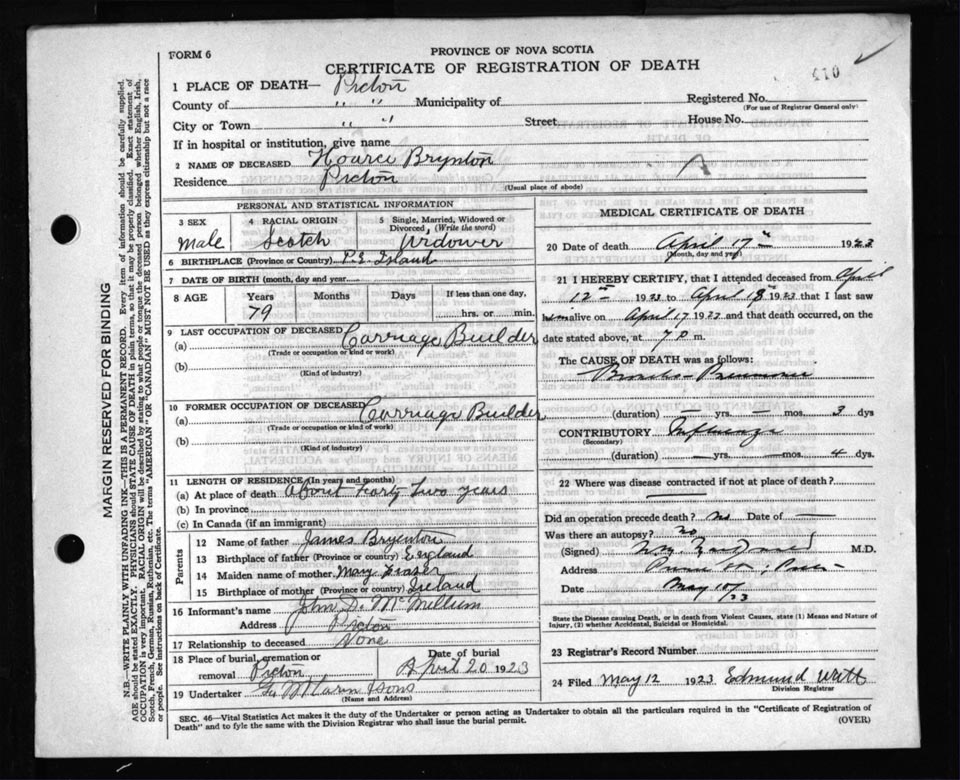 PROVINCE OF NOVA SCOTIA
FORM 6
CERTIFICATE OF REGISTRATION OF DEATH
410
1 PLACE OF DEATH— Pictou
County of " " Municipality of Registered No.
(For use of Registrar General only)
City or Town " " Street House No.
If in hospital or institution, give name
2 NAME OF DECEASED Hoarce Brynton
Residence Pictou A
(Usual place of abode)
PERSONAL AND STATISTICAL INFORMATION
3 SEX Male
4 RACIAL ORIGIN Scotch
5 Single, Married, Widowed or Divorced, (Write the word) Widower
6 BIRTHPLACE (Province or Country) P.E. Island
7 DATE OF BIRTH (month, day and year)
8 AGE Years Months Days If less than one day,
79 hrs. or min.
9 LAST OCCUPATION OF DECEASED
(a) Carriage Builder
(Trade or occupation or kind or work)
(b)
(Kind of industry)
10 FORMER OCCUPATION OF DECEASED
(a) Carriage Builder
(Trade or occupation or kind of work)
(b)
(Kind of industry)
11 LENGTH OF RESIDENCE (In years and months)
(a) At place of death About Forty Two years
(b) In province
(c) In Canada (if an immigrant)
Parents
12 Name of father James Bryenton
13 Birthplace of father (Province or country) England
14 Maiden name of mother Mary Frazer
15 Birthplace of mother (Province or country) Ireland
16 Informant's name John D. McMillum
Address Pictou
17 Relationship to deceased None
18 Place of burial, cremation or removal Pictou
Date of burial April 20 1923
19 Undertaker & Sons
(Name and Address)
MEDICAL CERTIFICATE OF DEATH
20 Date of death April 17th 1923
(Month, day and year)
21 I HEREBY CERTIFY, that I attended deceased from April
12th 1923 to April 18th 1923 that I last saw
him alive on April 17 1923 and that death occurred, on
date stated above, at 7 p m.
The CAUSE OF DEATH was as follows:
Broncho-Pneumonia
(duration) — yrs. — mos. 3 dys
CONTRIBUTORY Influenza
(Secondary)
(duration) — yrs. — mos. 4 dys.
22 Where was disease contracted if not at place of death?
Did an operation precede death? No Date of —
Was there an autopsy? No
(Signed) M.D.
Address
Date May 10/23
State the Disease causing Death, or in death from Violent Causes, state (1) Means and Nature of Injury, (2) whether Accidental, Suicidal or Homicidal.
23 Registrar's Record Number
24 Filed May 12 1923 Edmund Witt
Division Registrar
SEC. 46—Vital Statistics Act makes it the duty of the Undertaker or person acting as Undertaker to obtain all the particulars required in the "Certificate of Registration of
Death" and to fyle the same with the Division Registrar who shall issue the burial permit. (OVER)
MARGIN RESERVED FOR BINDING
N.B.—WRITE PLAINLY WITH UNFADING INK—THIS IS A PERMANENT RECORD. Every item of information should be carefully supplied.
AGE should be stated EXACTLY. PHYSICIANS should STATE CAUSE OF DEATH in plain terms, so that it may be properly classified. Exact statement of
OCCUPATION is very important. RACIAL ORIGIN will be described by stating to what people or tongue the deceased person belonged whether English, Irish,
Scotch, French, German, Russian, Ruthenian, etc. The terms "AMERICAN" OR "CANADIAN" MUST NOT BE USED as they express citizenship but not a race
or people. See instructions on back of Certificate.